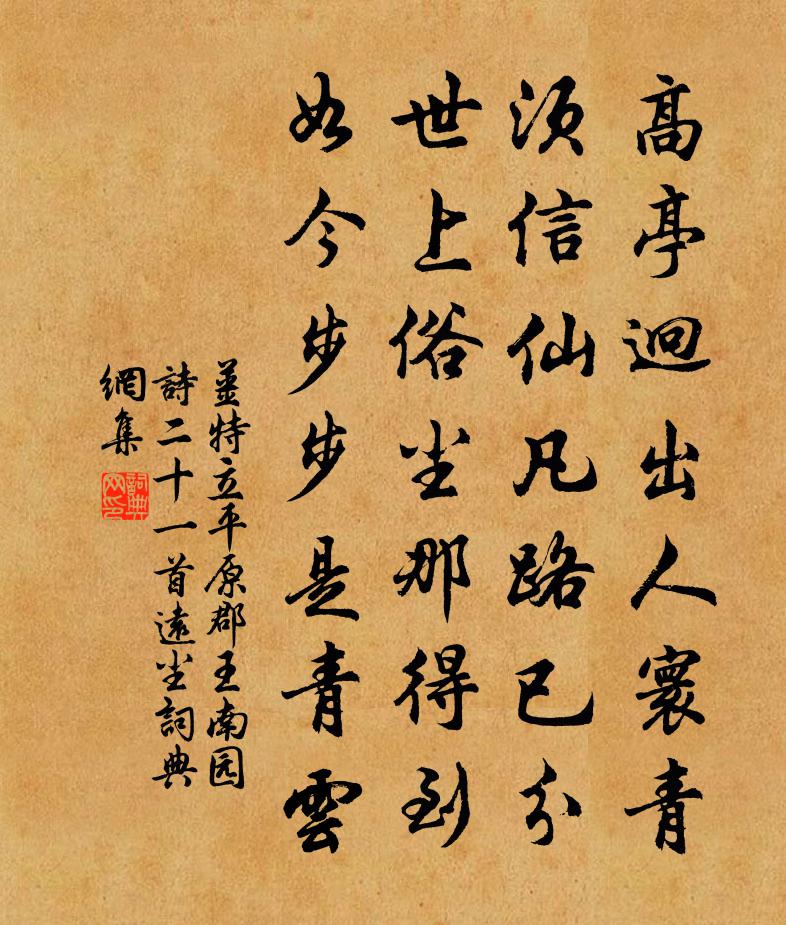 高亭迥出人寰青
須信仙凡路已分
世上俗尘那得到
如今步步是青雲
姜特立平原郡王南园
詩二十一首遠尘詞典
網集
詞典
网印